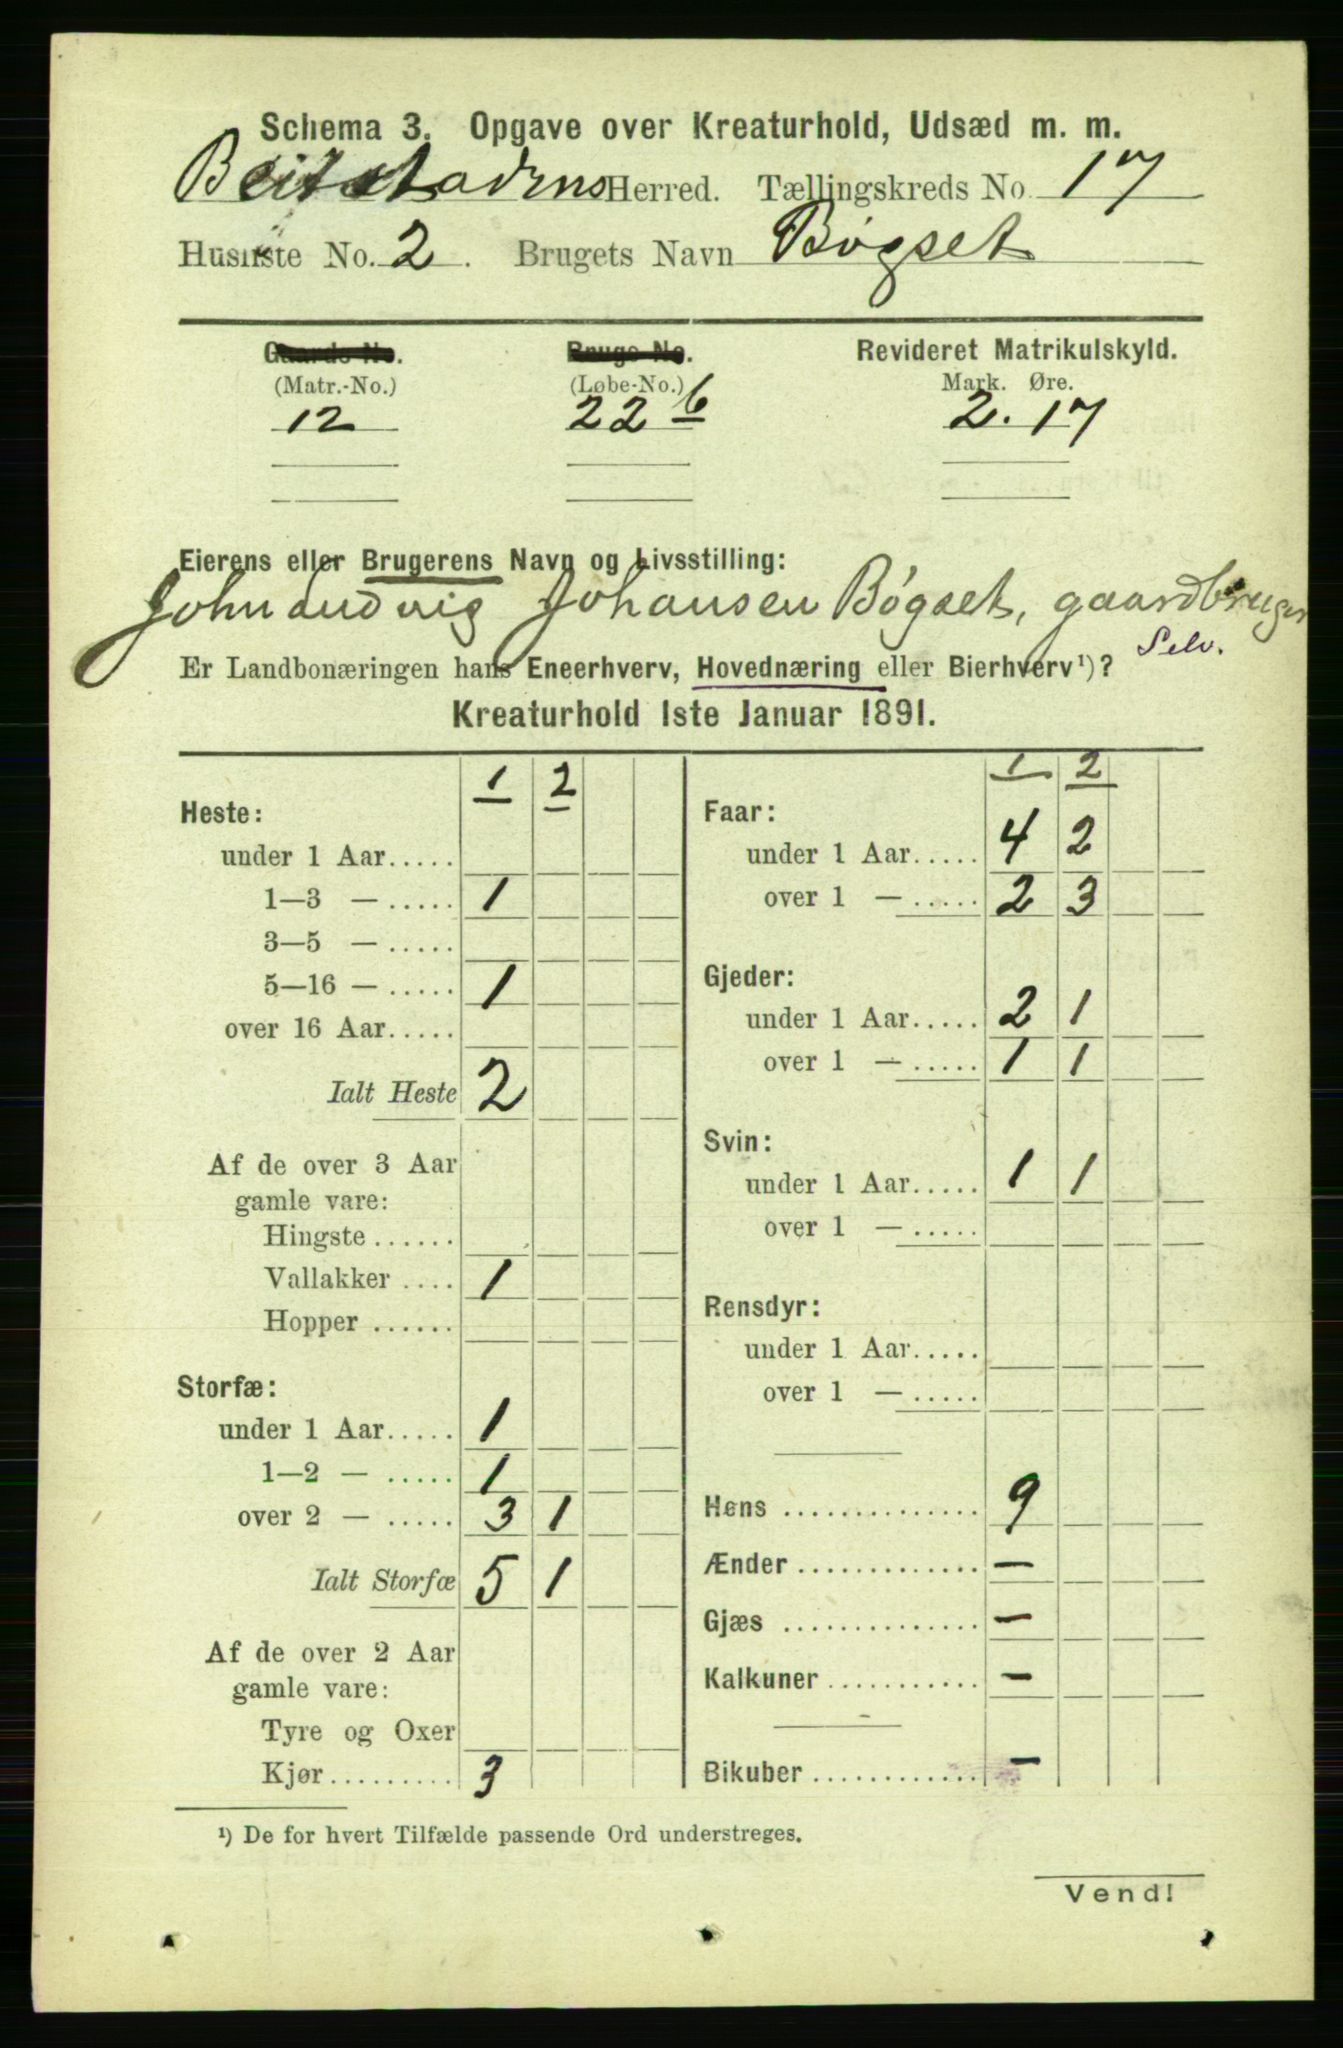 Schema 3. Opgave over Kreaturhold, Udsæd m. m.
Beitstadens Herred. Tællingskreds No. 17
Husliste No. 2. Brugets Navn Bøgset
Gaards No. Brugs No. Revideret Matrikulskyld.
(Matr.-No.) (Løbe-No.) Mark. Øre.
12 22 b 2. 17
Eierens eller Brugerens Navn og Livsstilling:
John Ludvig Johansen Bøgset, gaardbruger
Selv.
Er Landbonæringen hans Eneerhverv, Hovednæring eller Bierhverv¹)?
Kreaturhold 1ste Januar 1891.
1 2
Heste:
under 1 Aar.....
1—3 — ..... 1
3—5 — .....
5—16 — ..... 1
over 16 Aar.....
Ialt Heste 2
Af de over 3 Aar
gamle vare:
Hingste ......
Vallakker .... 1
Hopper ......
Storfæ:
under 1 Aar..... 1
1—2 — ..... 1
over 2 — ..... 3 1
Ialt Storfæ 5 1
Af de over 2 Aar
gamle vare:
Tyre og Oxer
Kjør.......... 3
1 2
Faar:
under 1 Aar..... 4 2
over 1 — ..... 2 3
Gjeder:
under 1 Aar..... 2 1
over 1 — ..... 1 1
Svin:
under 1 Aar..... 1 1
over 1 — .....
Rensdyr:
under 1 Aar.....
over 1 — .....
Høns .............. 9
Ænder ............. —
Gjæs .............. —
Kalkuner ........... —
Bikuber ............ —
¹) De for hvert Tilfælde passende Ord understreges.
Vend!